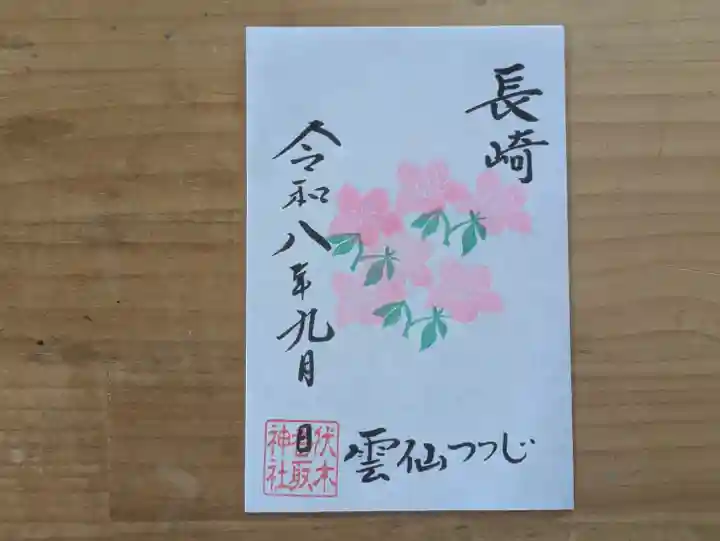 長崎
雲仙つつじ
令和八年九月 日
伏木
香取
神社